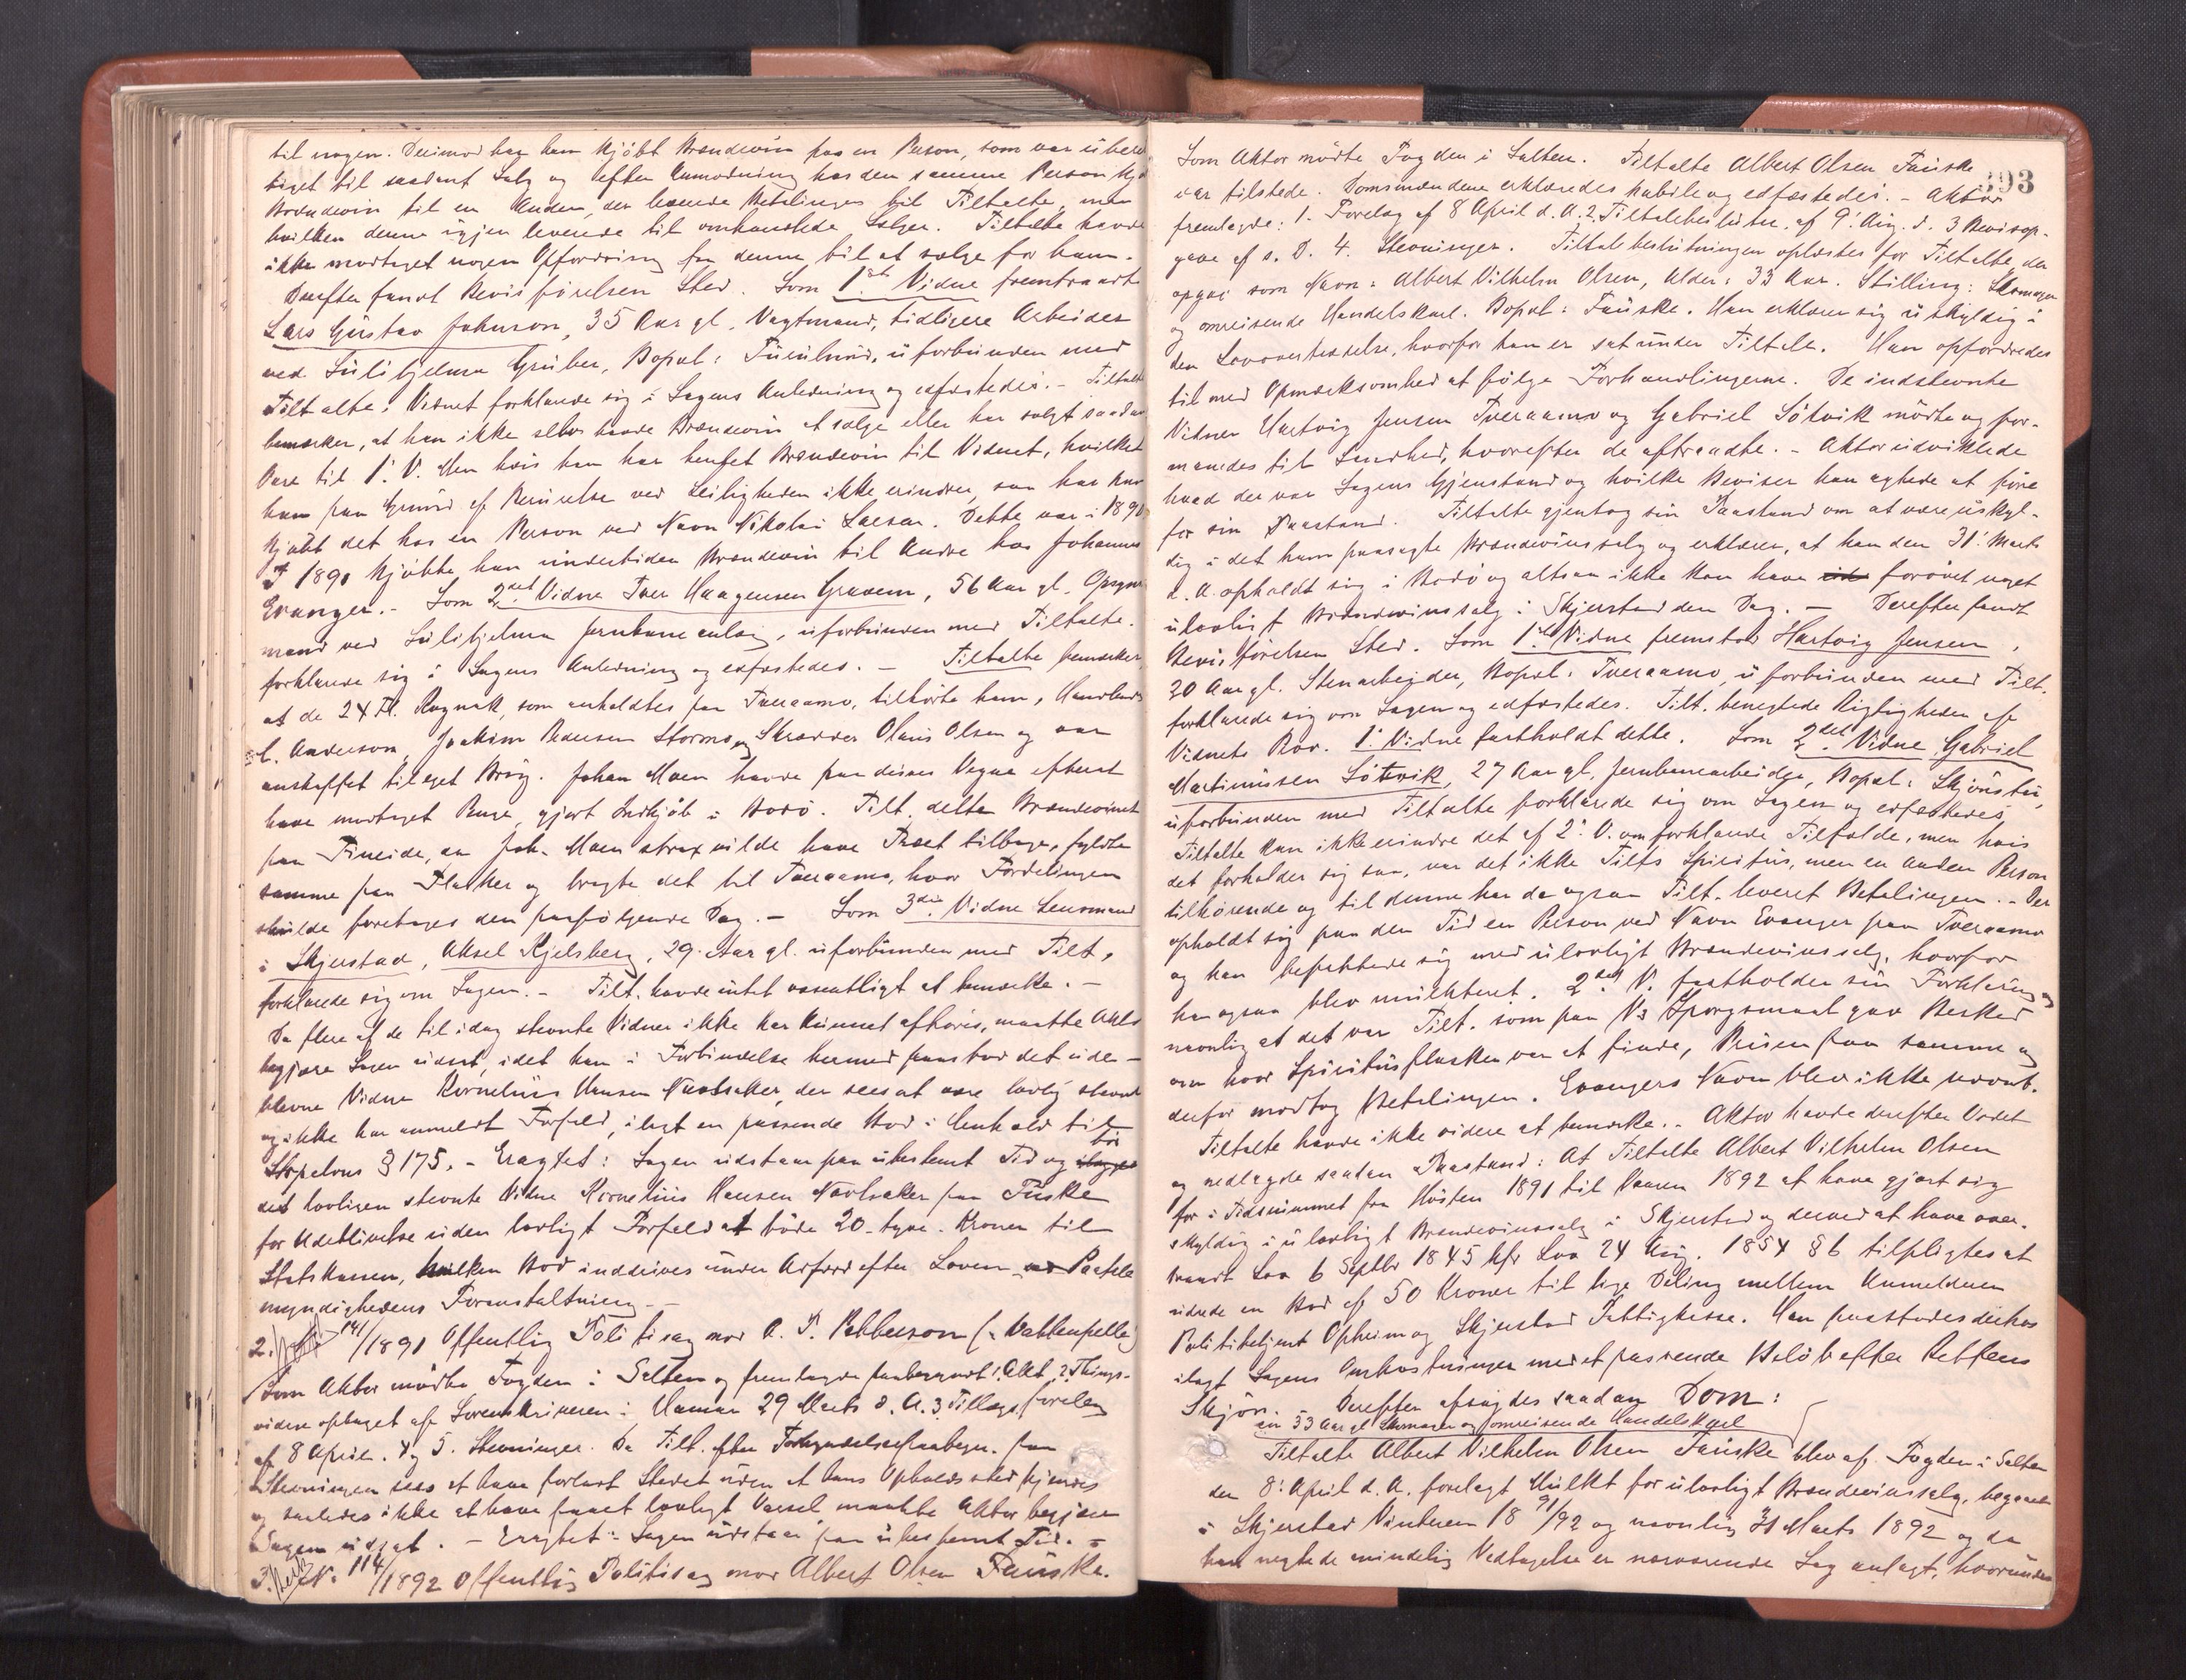 til nogen. Derimod har han kjöbt Brændevin paa en Person, som var uberet-
tiget til saadant Salg og efter Anmodning har den samme Person kjö
Brændevin til en Anden, der leverede Betalingen til Tiltalte, men
hvilken denne igjen leverede til omhandlede Sælger. Tiltalte havde
ikke modtaget nogen Opfordring fra denne til at sælge for ham.
Derefter fandt Bevisförelsen Sted. Som 1ste Vidne fremtraadte
Lars Gustav Johnson, 35 Aar gl. Vagtmand, tidligere Arbeider
ved Sulitjelma Gruber, Bopæl: Furulund, uforbunden med
Tiltalte. Vidnet forklarede sig i Sagens Anledning og edfæstedes. - Tiltalte
bemærker, at han ikke selv havde Brændevin at sælge eller har solgt saadan
Vare til 1. V. Men hvis han har hentet Brændevin til Vidnet, hvilket
han paa Grund af Beruselse ved Leiligheden ikke erindrer, saa har han
kjöbt det hos en Person ved Navn Nikolai Larsen. Dette var i 1890
I 1891 kjöbte han undertiden Brændevin til Andre hos Johannes
Evanger. - Som 2det Vidne Iver Haagensen Gravem, 56 Aar gl. Opsyns-
mand ved Sulitjelma Jernbaneanlæg, uforbunden med Tiltalte.
forklarede sig i Sagens Anledning og edfæstedes. - Tiltalte bemærker,
at de 24 Fl. Kognak, som anholdtes paa Tveraamo, tilhörte ham, Handlende
C. Anderson, Joakim Pedersen Storms og Skrædder Olaus Olsen og var
anskaffet til eget Brug. Johan Moen havde paa disses Vegne efterat
have modtaget Penge, gjort Indkjöb i Bodö. Tilt. delte Brændevinet
paa Fineide, da Joh. Moen strax vilde have Fadet tilbage, fyldte
samme paa Flasker og bragte det til Tveraamo, hvor Fordelingen
skulde foretages den paafölgende Dag. - Som 3die Vidne Lensmand
i Skjerstad, Aksel Kjelsberg, 29 Aar gl. uforbunden med Tilt.
forklarede sig om Sagen. - Tilt. havde intet væsentligt at bemærke. -
Da flere af de til idag stevnte Vidner ikke har kunnet afhöres, maatte Aktor
begjære Sagen udsat, idet han i Forbindelse hermed paastod det ude-
blevne Vidne Kornelius Hansen Navtsaker, der sees at være lovlig stevnt
og ikke har anmeldt Forfald, ilagt en passende Bod i Henhold til
Strpclovs § 175. - Eragtet: Sagen udstaar paa ubestemt Tid og bör
det lovligen stevnte Vidne Kornelius Hansen Navtsaker paa Fuske
for Udeblivelse uden lovligt Forfald at böde 20 - tyve - Kroner til
Statskassen, hvilken Bod inddrives under Adfærd efter Loven ved Paatale
myndighedens Foranstaltning. -
2. 141/1891 Offentlig Politisag mod A. P. Pettersson (: Vattenpelle)
Som Aktor mödte Fogden i Salten og fremlagde paaberaabt: 1. Akt 2. Things-
vidne optaget af Sorenskriveren i Hamar 29 Marts d. A. 3. Tillægsforelæg
af 8 April. 4 og 5. Stevninger. Da Tilt. efter Forkyndelsespaategn. paa
Stevningen sees at have forladt Stedet uden at hans Opholdssted kjendes
og saaledes ikke at have faaet lovligt Varsel, maatte Aktor begjære
Sagen udsat. - Eragtet: Sagen udstaar paa ubestemt Tid. -
3. No. 114/1892 Offentlig Politisag mod Albert Olsen Fauske.
393
Som Aktor mödte Fogden i Salten. Tiltalte Albert Olsen Fauske
var tilstede. Domsmændene erklæredes habile og edfæstedes. - Aktor
fremlagde: 1. Forelæg af 8 April d. A. 2. Tiltalebeslutn. af 9. Aug. s. 3 Bevisop-
gave af s. D. 4. Stevninger. Tiltalebeslutningen oplæstes for Tiltalte, der
opgav som Navn: Albert Vilhelm Olsen, Alder: 33 Aar. Stilling: Skomager
og omreisende Handelskarl. Bopæl: Fauske. Han erklærer sig uskyldig i
den Lovovertrædelse, hvorfor han er sat under Tiltale. Han opfordredes
til med Opmærksomhed at fölge Forhandlingerne. De indstevnte
Vidner Hartvig Jensen Tveraamo og Gabriel Sötvik mödte og for-
manedes til Sandhed, hvorefter de aftraadte. - Aktor udviklede
hvad der var Sagens Gjenstand og hvilke Beviser han agtede at före
for sin Paastand. Tiltalte gjentog sin Paastand om at være uskyl-
dig i det ham paasagte Brændevinssalg og erklærer, at han den 31. Marts
d. A. opholdt sig i Bodö og altsaa ikke kan have forövet noget
ulovligt Brændevinssalg i Skjerstad den Dag. - Derefter fandt
Bevisförelsen Sted. Som 1ste Vidne fremstod Hartvig Jensen,
30 Aar gl. Stenarbeider, Bopæl: Tveraamo, uforbunden med Tilt.
forklarede sig om Sagen og edfæstedes. Tilt. benegtede Rigtigheden af
Vidnets Prov. 1. Vidne fastholdt dette. Som 2det Vidne Gabriel
Martinussen Sötvik, 27 Aar gl. Jernbanearbeider, Bopæl: Skjönstu,
uforbunden med Tiltalte forklarede sig om Sagen og edfæstedes.
Tiltalte kan ikke erindre det af 2. V. omforklarede Tilfælde, men hvis
det forholder sig saa, var det ikke Tilts Spiritus, men en anden Person
tilhörende og til denne har da ogsaa Tilt. leveret Betalingen. - Der
opholdt sig paa den Tid en Person ved Navn Evanger paa Tveraamo
og han befattede sig med ulovligt Brændevinssalg, hvorfor
han ogsaa blev mulkteret. 2det V. fastholder sin Forklaring og
navnlig at det var Tilt. som paa Vs Spörgsmaal gav Besked
om hvor Spiritusflasken var at finde, Prisen paa samme og
derfor modtog Betalingen. Evangers Navn blev ikke nævnt.
Tiltalte havde ikke videre at bemærke. - Aktor havde derefter Ordet
og nedlagde saadan Paastand: At Tiltalte Albert Vilhelm Olsen
for i Tidsrummet fra Hösten 1891 til Vaaren 1892 at have gjort sig
skyldig i ulovligt Brændevinssalg i Skjerstad og derved at have over-
traadt Lov 6 Septbr 1845 kfr Lov 24 Aug. 1854 § 6 tilpligtes at
udrede en Bod af 50 Kroner til lige Deling mellem Anmelderen
Politibetjent Opheim og Skjerstad Fattigkasse. Han paastodes derhos
ilagt Sagens Omkostninger med et passende Belöb efter Rettens
Skjön. Derefter afsagdes saadan Dom:
en 33 Aar gl. Skomager og omreisende Handelskarl
Tiltalte Albert Vilhelm Olsen Fauske blev af Fogden i Salten
den 8. April d. A. forelagt Mulkt for ulovligt Brændevinssalg, begaaet
i Skjerstad Vinteren 1891/92 og navnlig 31 Marts 1892 og da
han negtede mindelig Vedtagelse er nærværende Sag anlagt, hvorunder